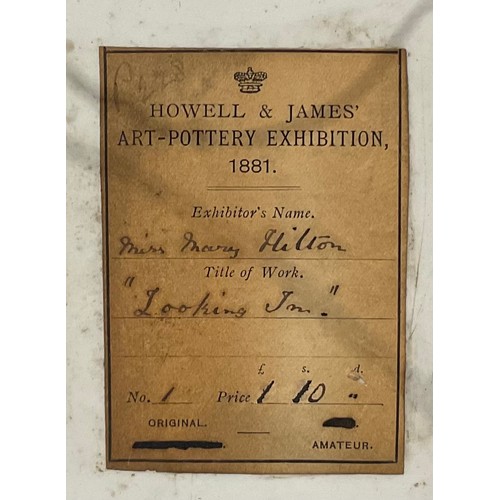 HOWELL & JAMES'
ART-POTTERY EXHIBITION,
1881.
Exhibitor's Name.
Miss Mary Hilton
Title of Work.
"Looking In."
£ s. d.
No. 1 Price 1 10 "
ORIGINAL.
AMATEUR.